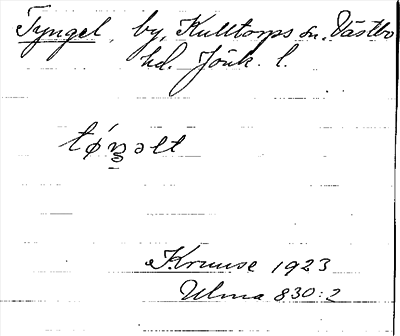 Tyngel, by, Kulltorps sn. Västbo
hd. Jönk. l.
tǿŋəlt
Kruuse 1923
Ulma 830:2